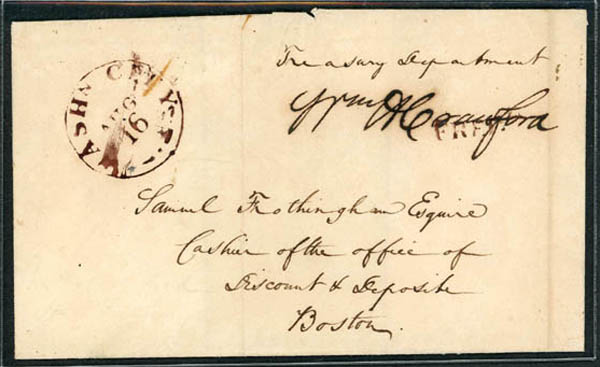 WASHN CITY
AUG
16
Treasury Department
Wm H Crawford
FREE
Samuel Frothingham Esquire
Cashier of the office of
Discount & Deposite
Boston.